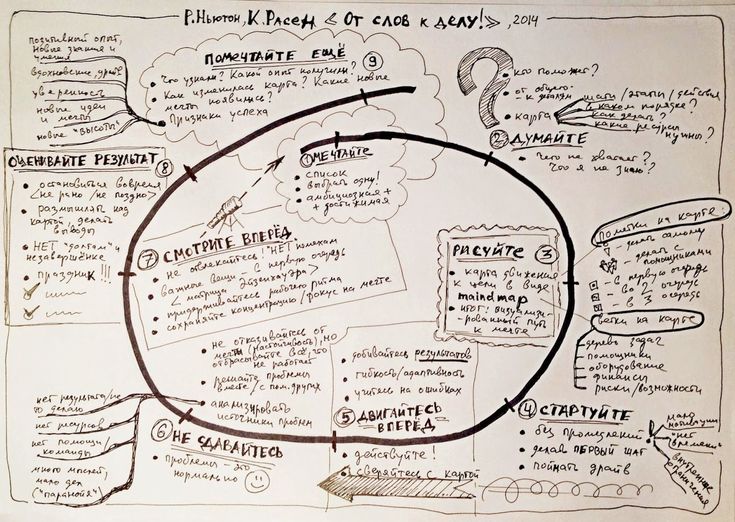 Р. Ньютон, К. Расел «От слов к делу!», 2014
① МЕЧТАЙТЕ
• список
• выбрать одну!
• амбициозная +
+ достижимая
② ДУМАЙТЕ
• кто поможет?
• от общего
к деталям
• карта
шаги/этапы/действия
в каком порядке?
как делать?
какие ресурсы
нужны?
• Чего не хватает?
Что я не знаю?
РИСУЙТЕ ③
• карта движения
к цели в виде
maindmap
• итог: визуализи-
рованный путь
к мечте
Пометки на карте
- делать самому
- делать с
помощниками
- в первую очередь
- во 2 очередь
- в 3 очередь
Ветки на карте
дерево задач
помощники
оборудование
финансы
риски/возможности
④ СТАРТУЙТЕ
• без промедлений
• делай ПЕРВЫЙ ШАГ
• поймать драйв
мало
мотивации
"нет
времени"
внутренние
ограничения
• добивайтесь результатов
• гибкость/адаптивность
• учитесь на ошибках
⑤ ДВИГАЙТЕСЬ
ВПЕРЁД
• действуйте!
• сверяйтесь с картой
• не отказывайтесь от
мечты (настойчивость), но
отбрасывайте всё, что
не работает
• решайте проблемы
вместе/с пом. других
• анализировать
источники проблем
⑥ НЕ СДАВАЙТЕСЬ
• проблемы - это
нормально
нет результата/не
то делаю
нет ресурсов
нет помощи/
команды
много мыслей,
мало дел
("паранойя")
⑦ СМОТРИТЕ ВПЕРЁД
• не отвлекайтесь! "НЕТ" помехам
• важные вещи - в первую очередь
<матрица Эйзенхауэра>
• придерживайтесь рабочего ритма
• сохраняйте концентрацию/фокус на мечте
ОЦЕНИВАЙТЕ РЕЗУЛЬТАТ ⑧
• остановиться вовремя
<не рано/не поздно>
• размышлять над
картой, делать
выводы
• НЕТ "долгам" и
незавершёнке
• праздник!!!
ПОМЕЧТАЙТЕ ЕЩЁ ⑨
• Что узнали? Какой опыт получили?
• Как изменилась карта? Какие новые
мечты появились?
• Признаки успеха
позитивный опыт,
новые знания и
умения
вдохновение, драйв
уверенность
новые идеи
и мечты
новые "высоты"